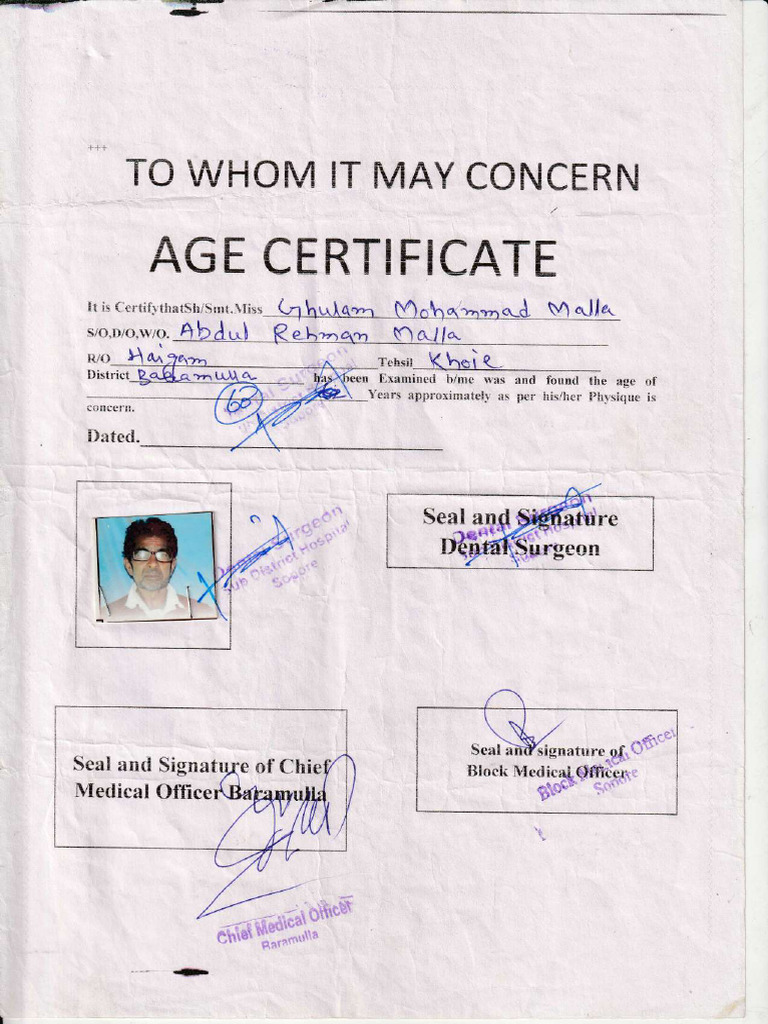 +++
TO WHOM IT MAY CONCERN
AGE CERTIFICATE
It is CertifythatSh/Smt.Miss Ghulam Mohammad Malla
S/O,D/O,W/O. Abdul Rehman Malla
R/O Haigam Tehsil Khoie
District Baramulla has been Examined b/me was and found the age of
60 Years approximately as per his/her Physique is
concern.
Dated.
Dental Surgeon
Sub District Hospital
Sopore
Seal and Signature
Dental Surgeon
Dental Surgeon
Seal and Signature of Chief
Medical Officer Baramulla
Chief Medical Officer
Baramulla
Seal and signature of
Block Medical Officer
Block Medical Officer
Sopore